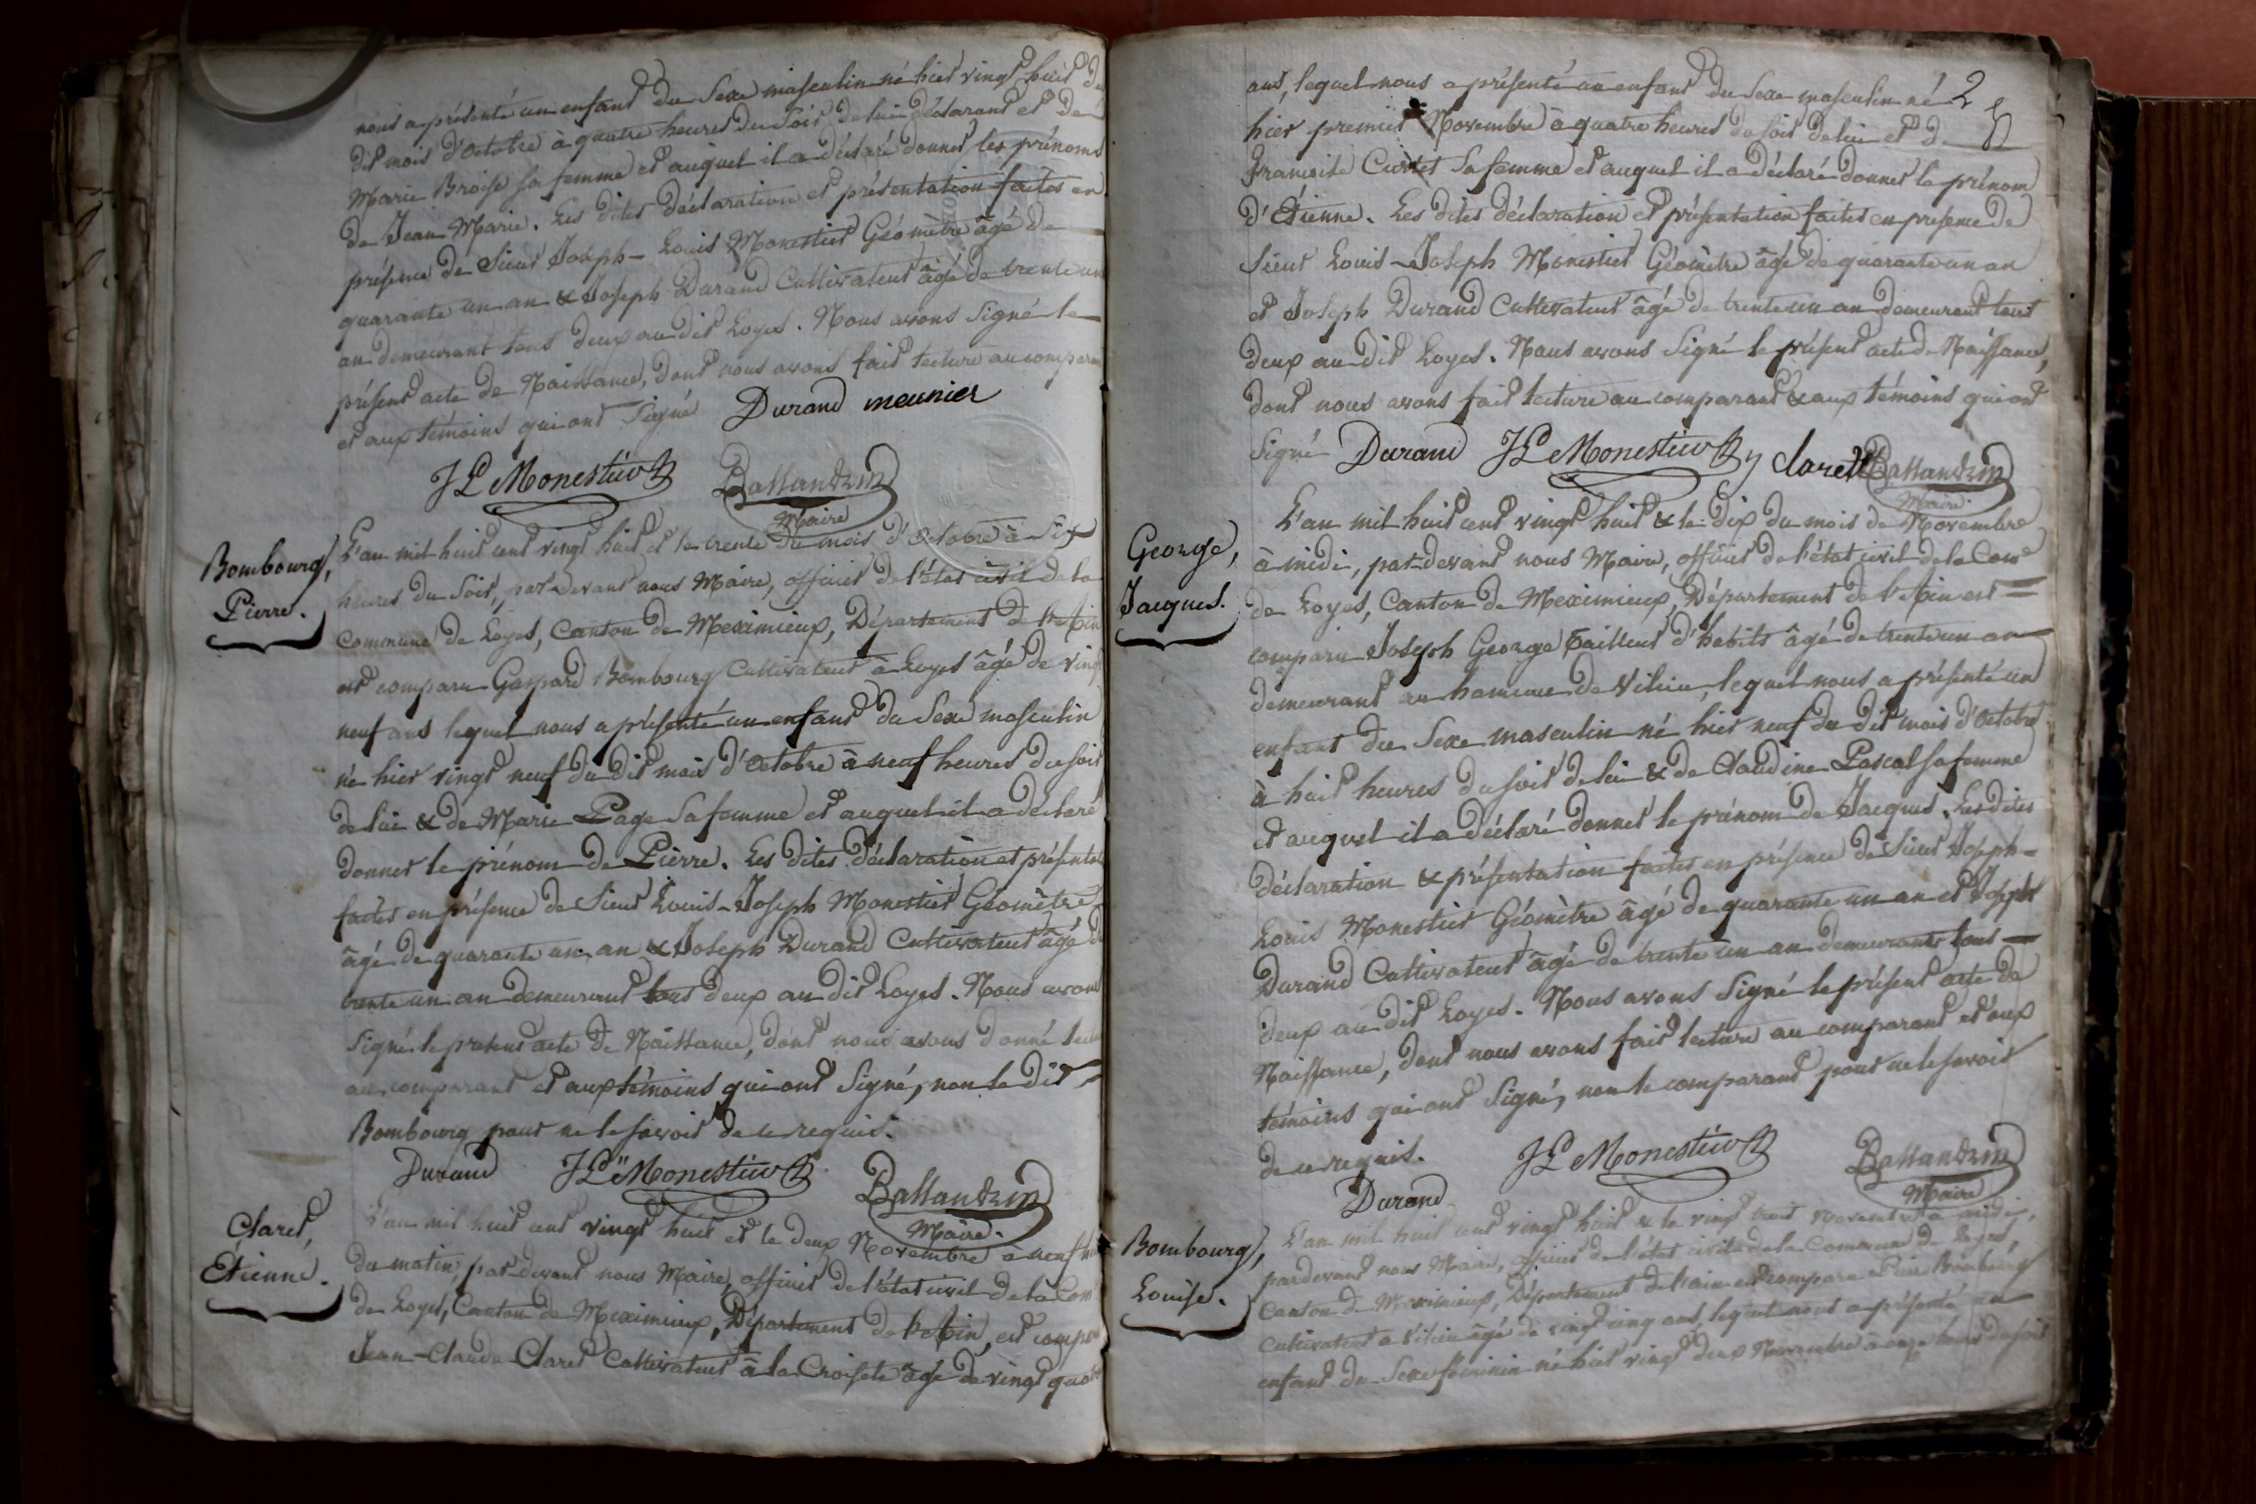 nous a présenté un enfant du Sexe masculin né hier vingt huit du
dit mois d'Octobre à quatre heures du Soir de lui déclarant et de
Marie Broise sa femme et auquel il a déclaré donner les prénoms
de Jean Marie. Les dites déclaration et présentation faites en
présence de Sieur Joseph-Louis Monestier Géomètre âgé de
quarante un an & Joseph Durand Cultivateur âgé de trente un
an demeurant tous deux au dit Loyes. Nous avons Signé le
présent acte de Naissance, dont nous avons fait lecture au comparant
et aux témoins qui ont Signé Durand meunier
JL Monestier Ballandrin
Maire
Bombourg,
Pierre.
L'an mil huit cent vingt huit et le trente du mois d'Octobre à Six
heures du Soir, par-devant nous Maire, officier de l'état civil de la
Commune de Loyes, Canton de Meximieux, Département de l'Ain
est comparu Gaspard Bombourg Cultivateur à Loyes âgé de vingt
neuf ans lequel nous a présenté un enfant du Sexe masculin
né hier vingt neuf du dit mois d'Octobre à neuf heures du soir
de lui & de Marie Page Sa femme et auquel il a déclaré
donner le prénom de Pierre. Les dites déclaration et présentat
faites en présence de Sieur Louis-Joseph Monestier Géomètre
âgé de quarante un an & Joseph Durand Cultivateur âgé d
trente un an demeurant tous deux au dit Loyes. Nous avons
Signé le présent acte de Naissance, dont nous avons donné lectu
au comparant et aux témoins qui ont Signé, non le dit
Bombourg pour ne le savoir de ce requis.
Durand JL Monestier Ballandrin
Maire.
Claret,
Etienne.
L'an mil huit cent vingt huit et le deux Novembre à neuf heu
du matin, par-devant nous Maire, officier de l'état civil de la Com
de Loyes, Canton de Meximieux, Département de l'Ain, est comparu
Jean-Claude Claret Cultivateur à la Croisete âgé de vingt quatre
2
ans, lequel nous a présenté un enfant du Sexe masculin né
hier premier Novembre à quatre heures du soir de lui et de
Francoise Curtet Sa femme et auquel il a déclaré donner le prénom
d'Etienne. Les dites déclaration et présentation faites en presence de
Sieur Louis-Joseph Monestier Géomètre âgé de quarante un an
et Joseph Durand Cultivateur âgé de trente un an demeurant tous
deux au dit Loyes. Nous avons Signé le présent acte de Naissance,
dont nous avons fait lecture au comparant & aux témoins qui ont
Signé Durand JL Monestier Claret Ballandrin
Maire.
George,
Jacques.
L'an mil huit cent vingt huit & le dix du mois de Novembre
à midi, par-devant nous Maire, officier de l'état civil de la Comne
de Loyes, Canton de Meximieux, Département de l'Ain est
comparu Joseph George Tailleur d'habits âgé de trente un an
demeurant au hameau de Vilieu, lequel nous a présenté un
enfant du Sexe masculin né hier neuf du dit mois d'Octobre
à huit heures du soir de lui & de Claudine Pascal sa femme
et auquel il a déclaré donner le prénom de Jacques. Les dites
déclaration & présentation faites en présence de Sieur Joseph-
Louis Monestier Géomètre âgé de quarante un an et Joseph
Durand Cultivateur âgé de trente un an demeurants tous
deux au dit Loyes. Nous avons Signé le présent acte de
Naissance, dont nous avons fait lecture au comparant et aux
témoins qui ont Signé, non le comparant pour ne le savoir
de ce requis. JL Monestier Ballandrin
Durand Maire
Bombourg,
Louise.
L'an mil huit cent vingt huit & le vingt trois Novembre à midi,
pardevant nous Maire, officier de l'état civil de la Commune de Loyes,
Canton de Meximieux, Département de l'ain est comparu Bombourg
Cultivateur à Vilieu âgé de vingt cinq ans, lequel nous a présenté un
enfant du Sexe féminin né hier vingt deux Novembre à onze heures du soir